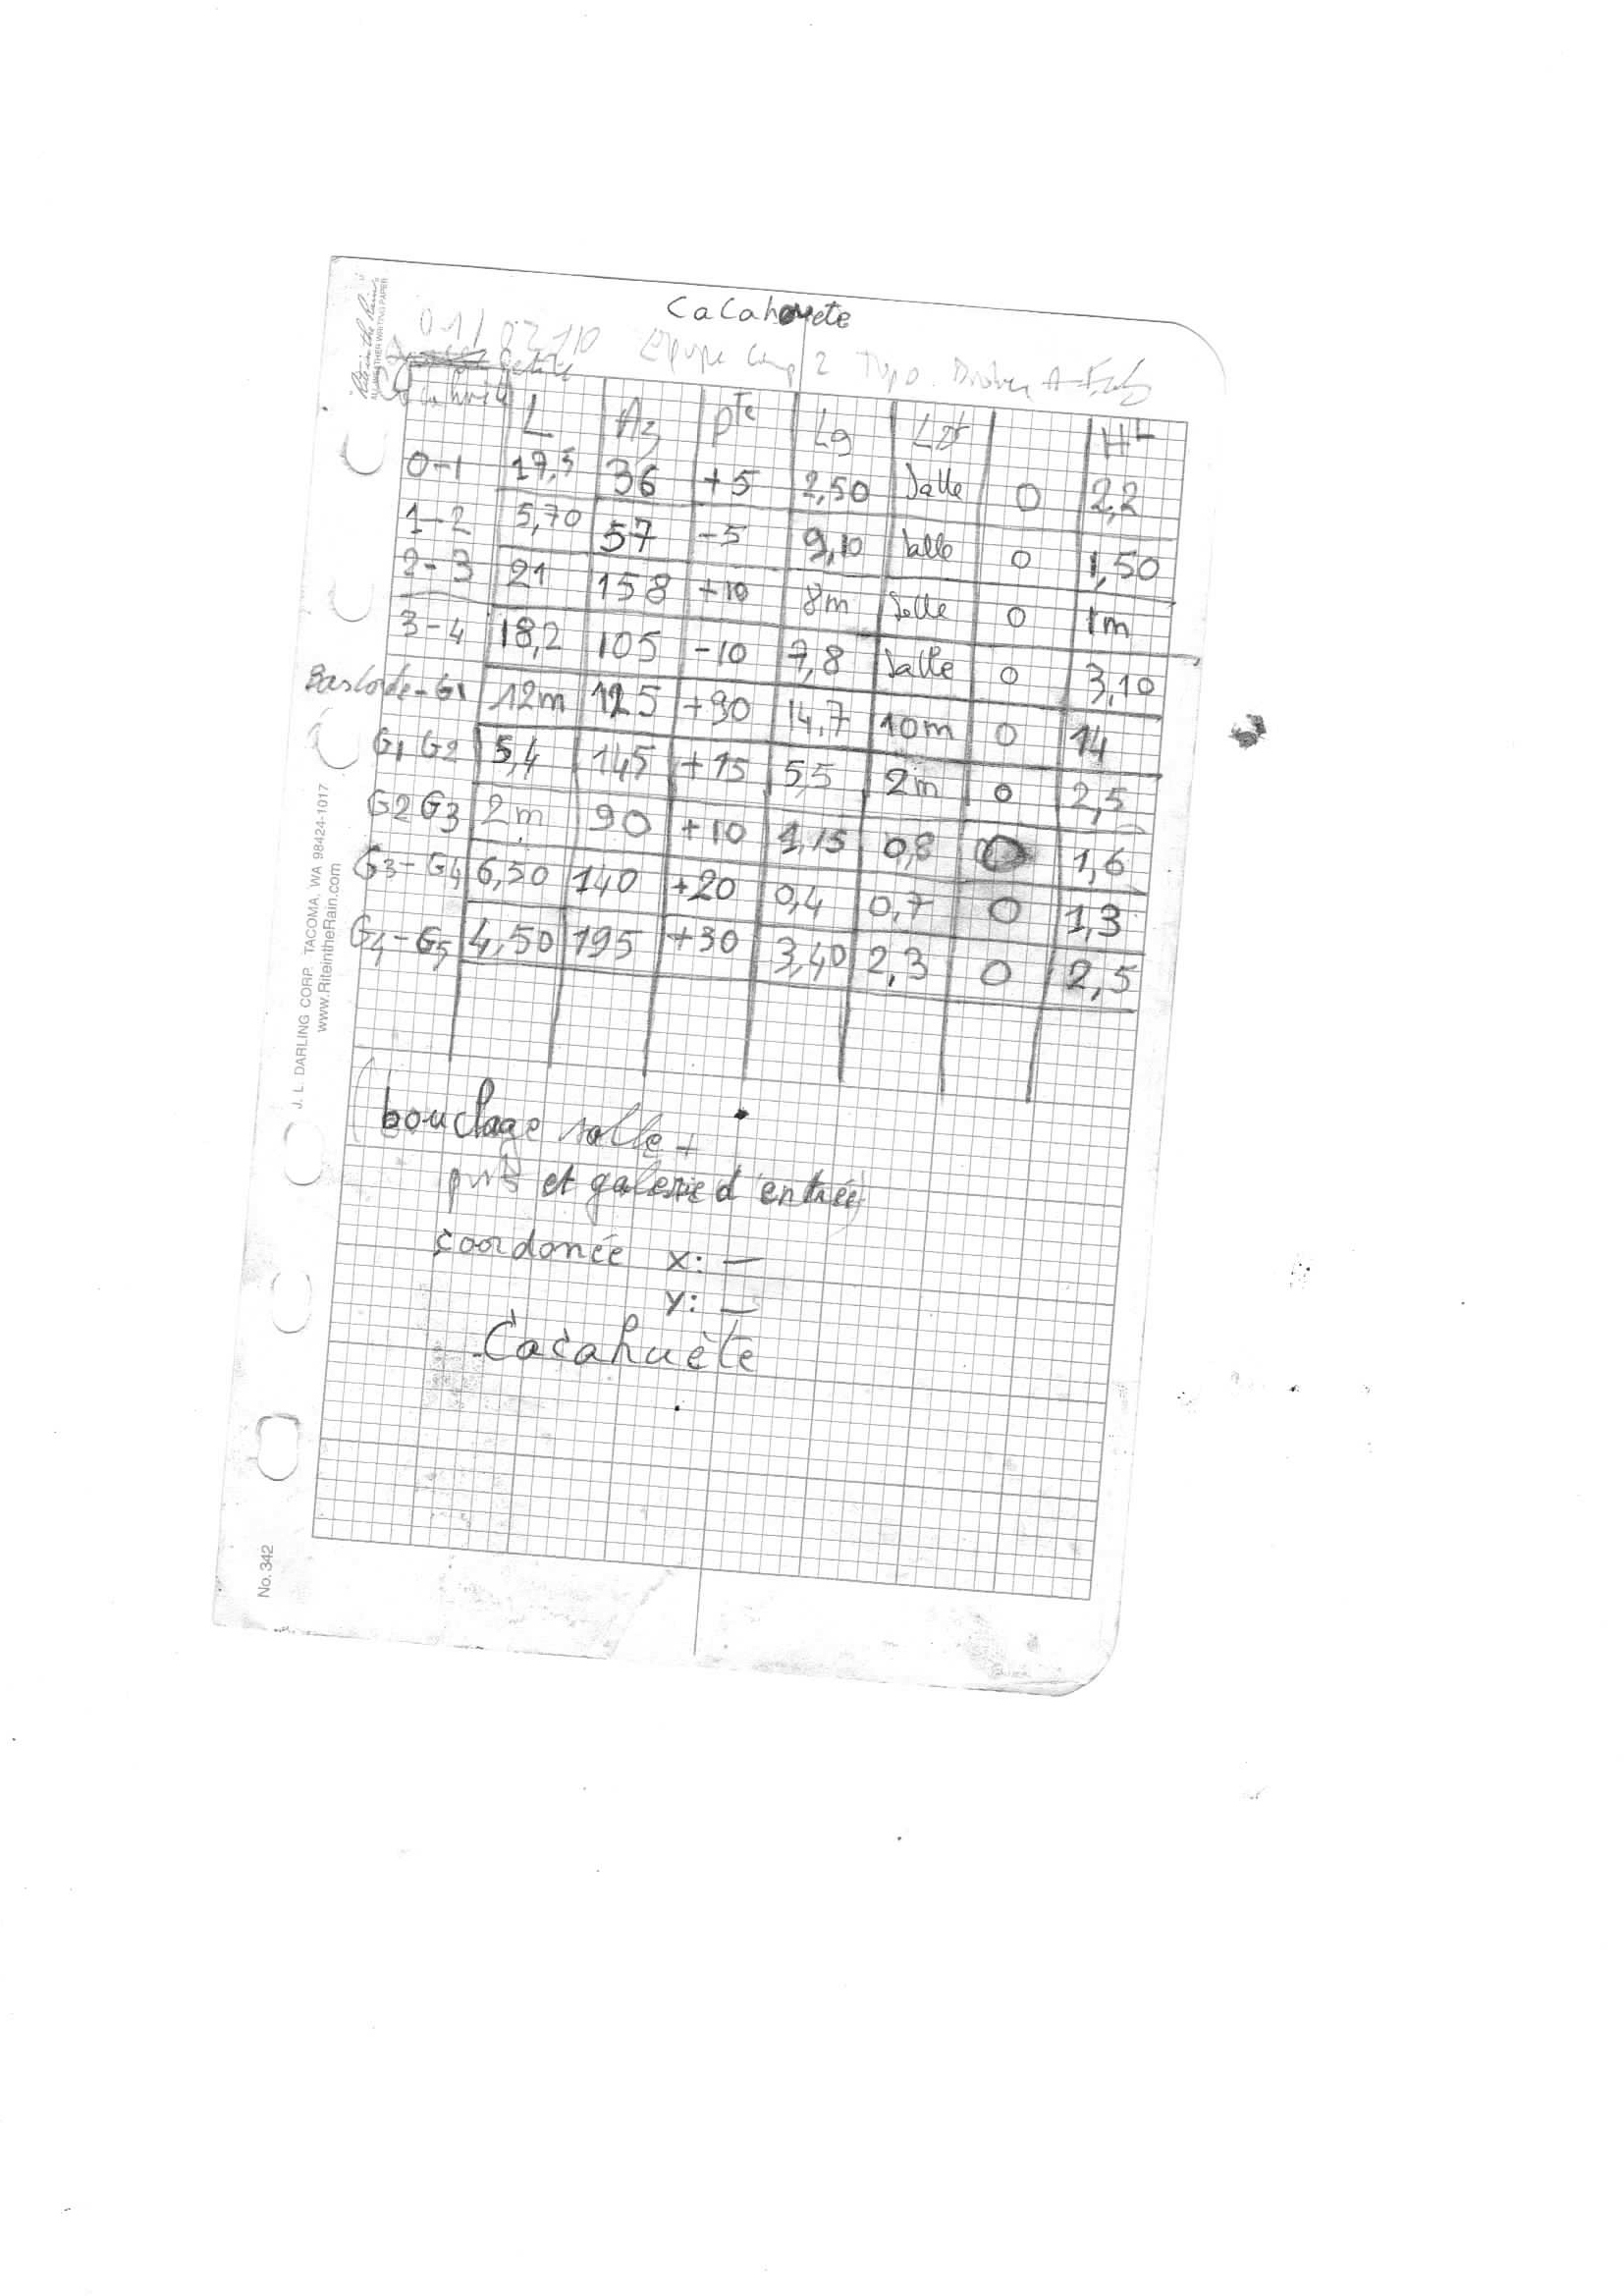 CaCahouete
Rite in the Rain
ALL-WEATHER WRITING PAPER
Equipe Camp 2 Topo.
L Az pte Lg H
0-1 17,5 36 +5 2,50 Salle 0 2,2
1-2 5,70 57 -5 9,10 Salle 0 1,50
2-3 21 158 +10 8m Salle 0 1m
3-4 18,2 105 -10 7,8 Salle 0 3,10
Bas corde-G1 12m 125 +90 14,7 10m 0 14
G1 G2 5,4 145 +15 5,5 2m 0 2,5
G2 G3 2m 90 +10 1,15 0,8 0 1,6
G3-G4 6,50 140 +20 0,4 0,7 0 1,3
G4-G5 4,50 195 +30 3,40 2,3 0 2,5
(bouclage salle +
puits et galerie d'entrée)
coordonée x: —
y: —
Cacahuète
J. L. DARLING CORP. TACOMA, WA 98424-1017
www.RiteintheRain.com
No. 342